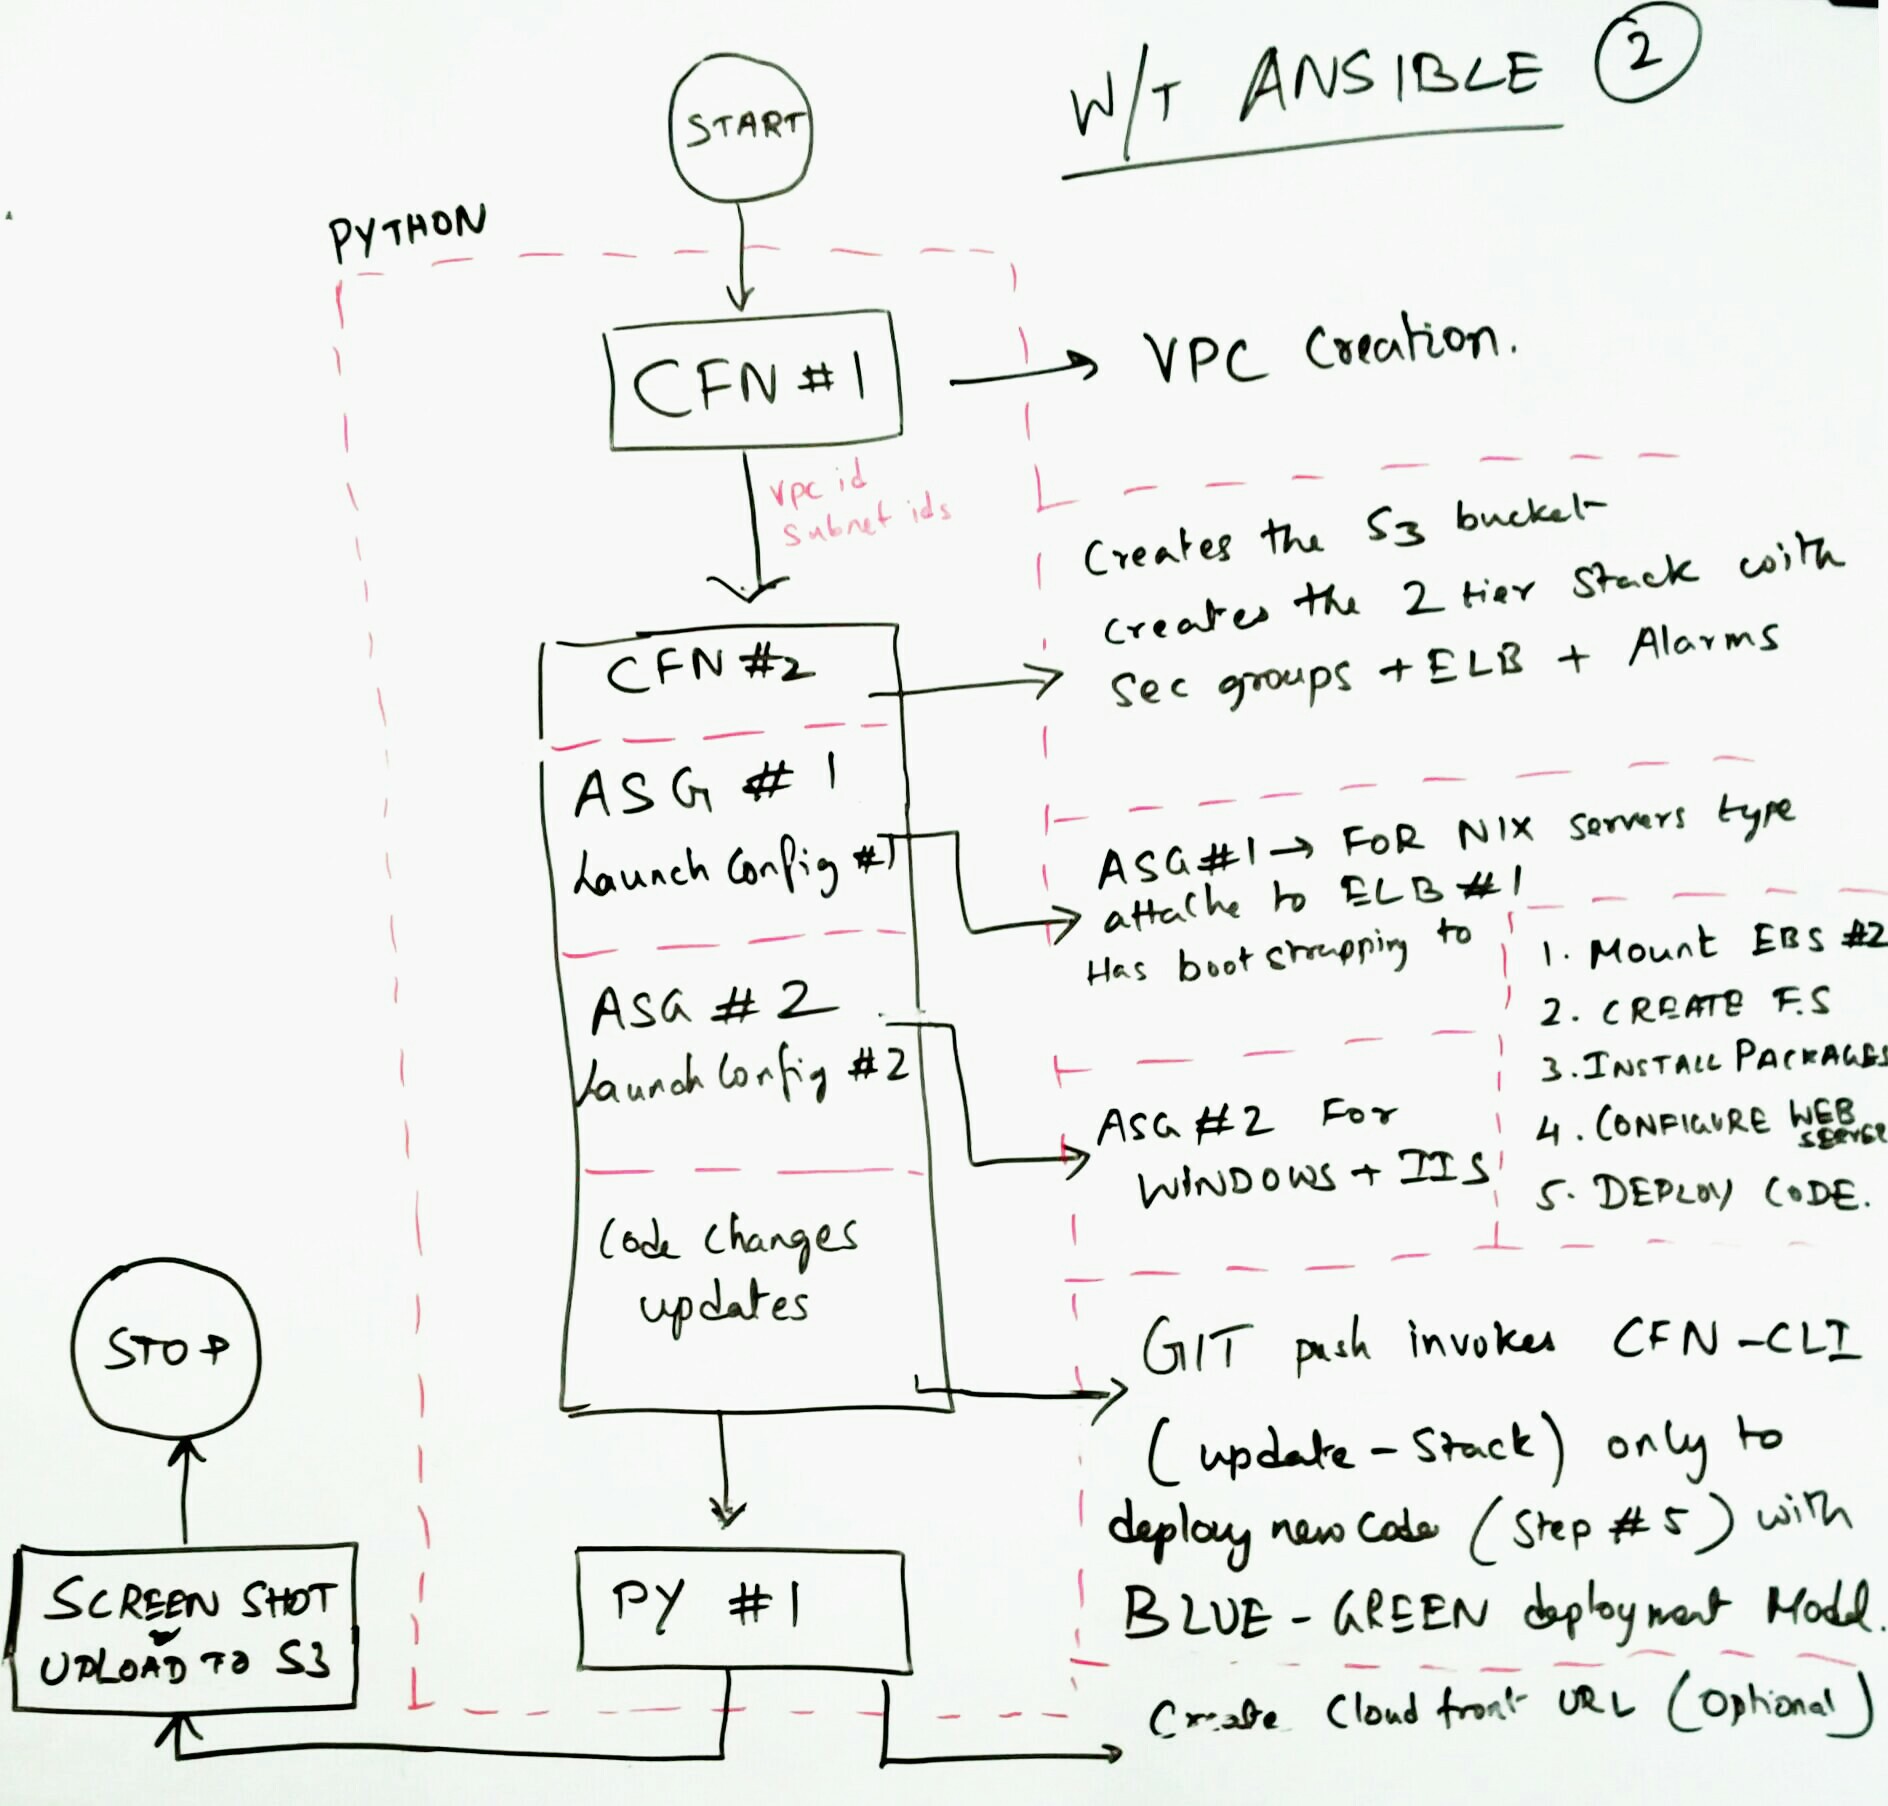 W/T ANSIBLE 2
START
PYTHON
CFN #1
VPC Creation.
vpc id
Subnet ids
Creates the S3 bucket
creates the 2 tier Stack with
Sec groups + ELB + Alarms
CFN #2
ASG # 1
Launch Config #1
ASG #1 → FOR NIX servers type
attache to ELB #1
Has bootstrapping to
1. Mount EBS #2
2. CREATE F.S
3. INSTALL PACKAGES
4. CONFIGURE WEB
SERVER
5. DEPLOY CODE.
ASG # 2
Launch Config #2
ASG #2 For
WINDOWS + IIS
Code changes
updates
GIT push invokes CFN-CLI
(update-Stack) only to
deploy new Code (Step #5) with
BLUE-GREEN deployment Model.
STOP
SCREEN SHOT
UPLOAD TO S3
PY #1
Create Cloud front URL (Optional)